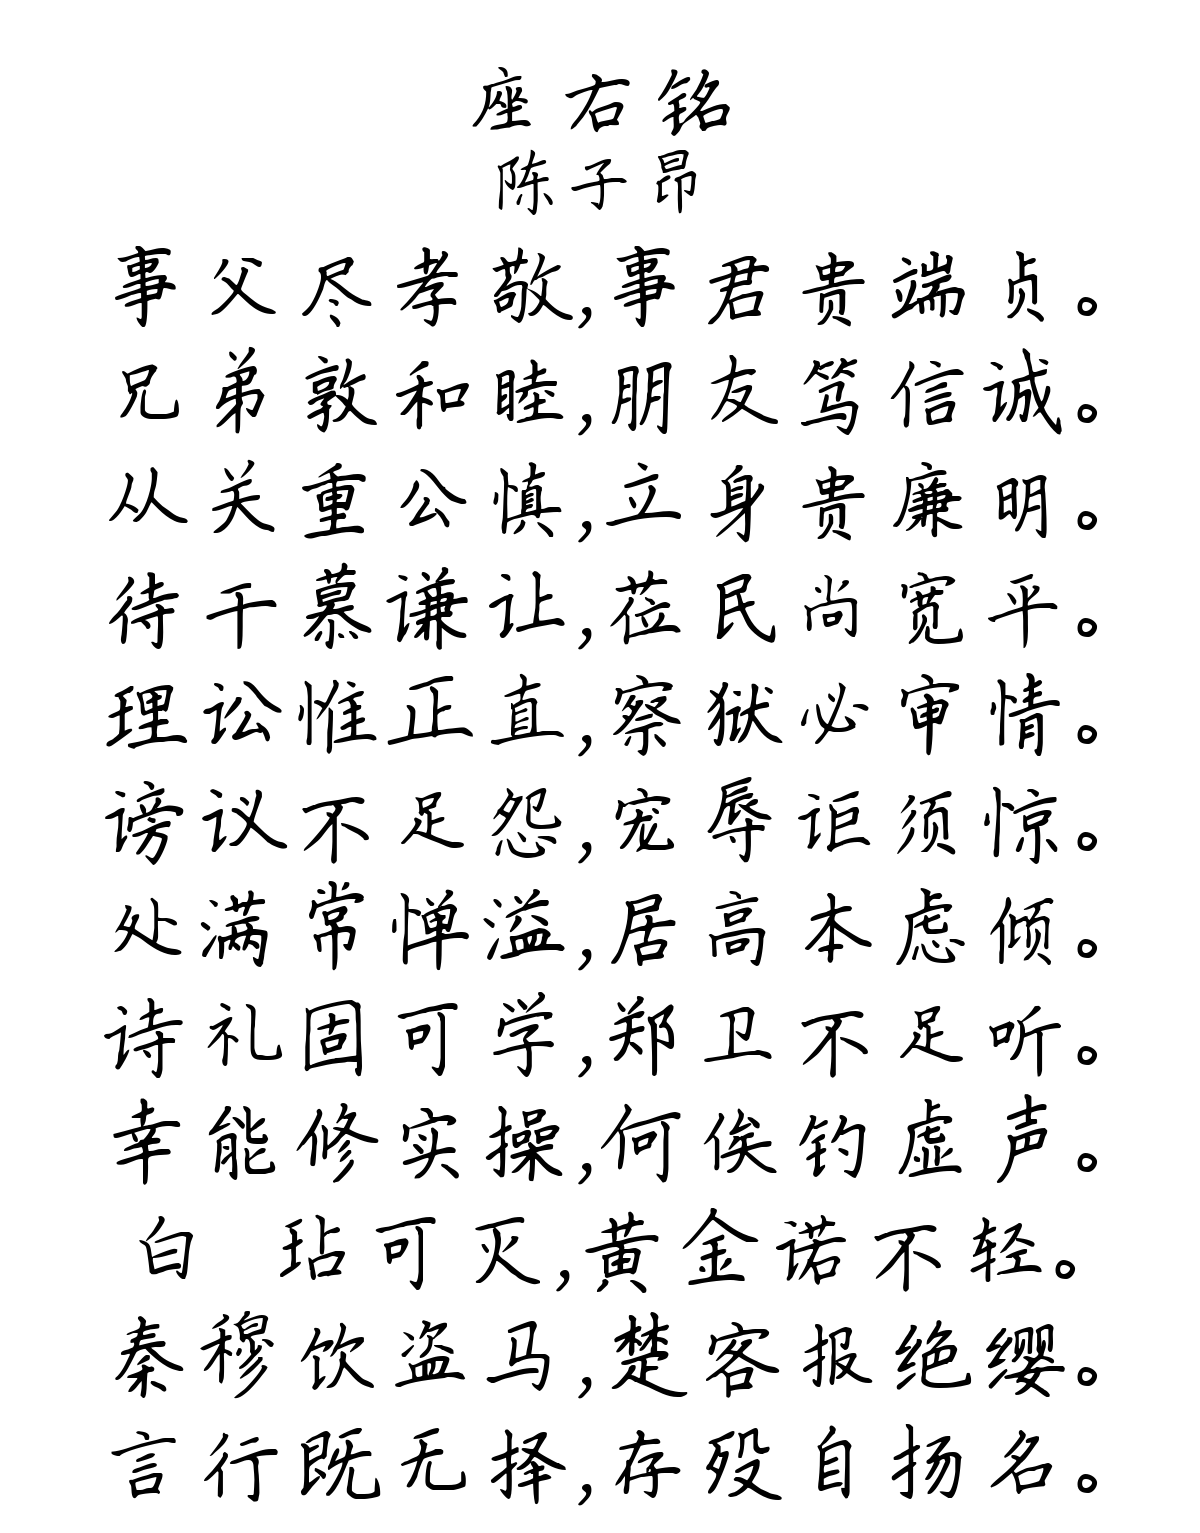 座右铭
陈子昂
事父尽孝敬,事君贵端贞。
兄弟敦和睦,朋友笃信诚。
从关重公慎,立身贵廉明。
待干慕谦让,莅民尚宽平。
理讼惟正直,察狱必审情。
谤议不足怨,宠辱讵须惊。
处满常惮溢,居高本虑倾。
诗礼固可学,郑卫不足听。
幸能修实操,何俟钓虚声。
白 玷可灭,黄金诺不轻。
秦穆饮盗马,楚客报绝缨。
言行既无择,存殁自扬名。